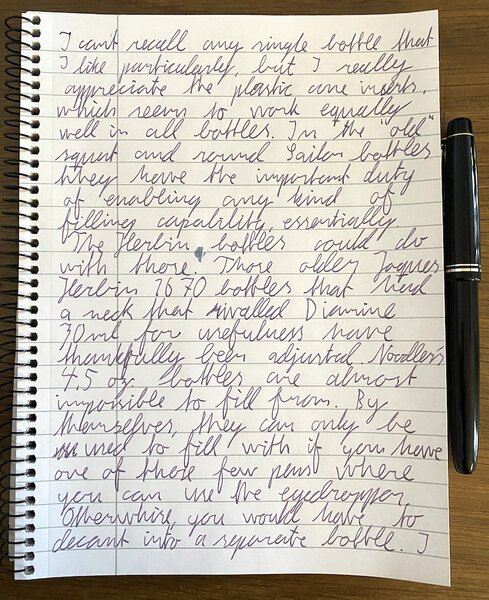 I can't recall any single bottle that
I like particularly, but I really
appreciate the plastic cone inserts,
which seem to work equally
well in all bottles. In the "old"
squat and round Sailor bottles
they have the important duty
of enabling any kind of
filling capability, essentially.
The Herbin bottles could do
with those. Those older Jaques
Herbin 1670 bottles that had
a neck that rivalled Diamine
30ml for usefulness have
thankfully been adjusted. Noodler's
4.5 oz. bottles are almost
impossible to fill from. By
themselves, they can only be
used to fill with if you have
one of those few pens where
you can use the eyedropper.
Otherwhise, you would have to
decant into a separate bottle. I